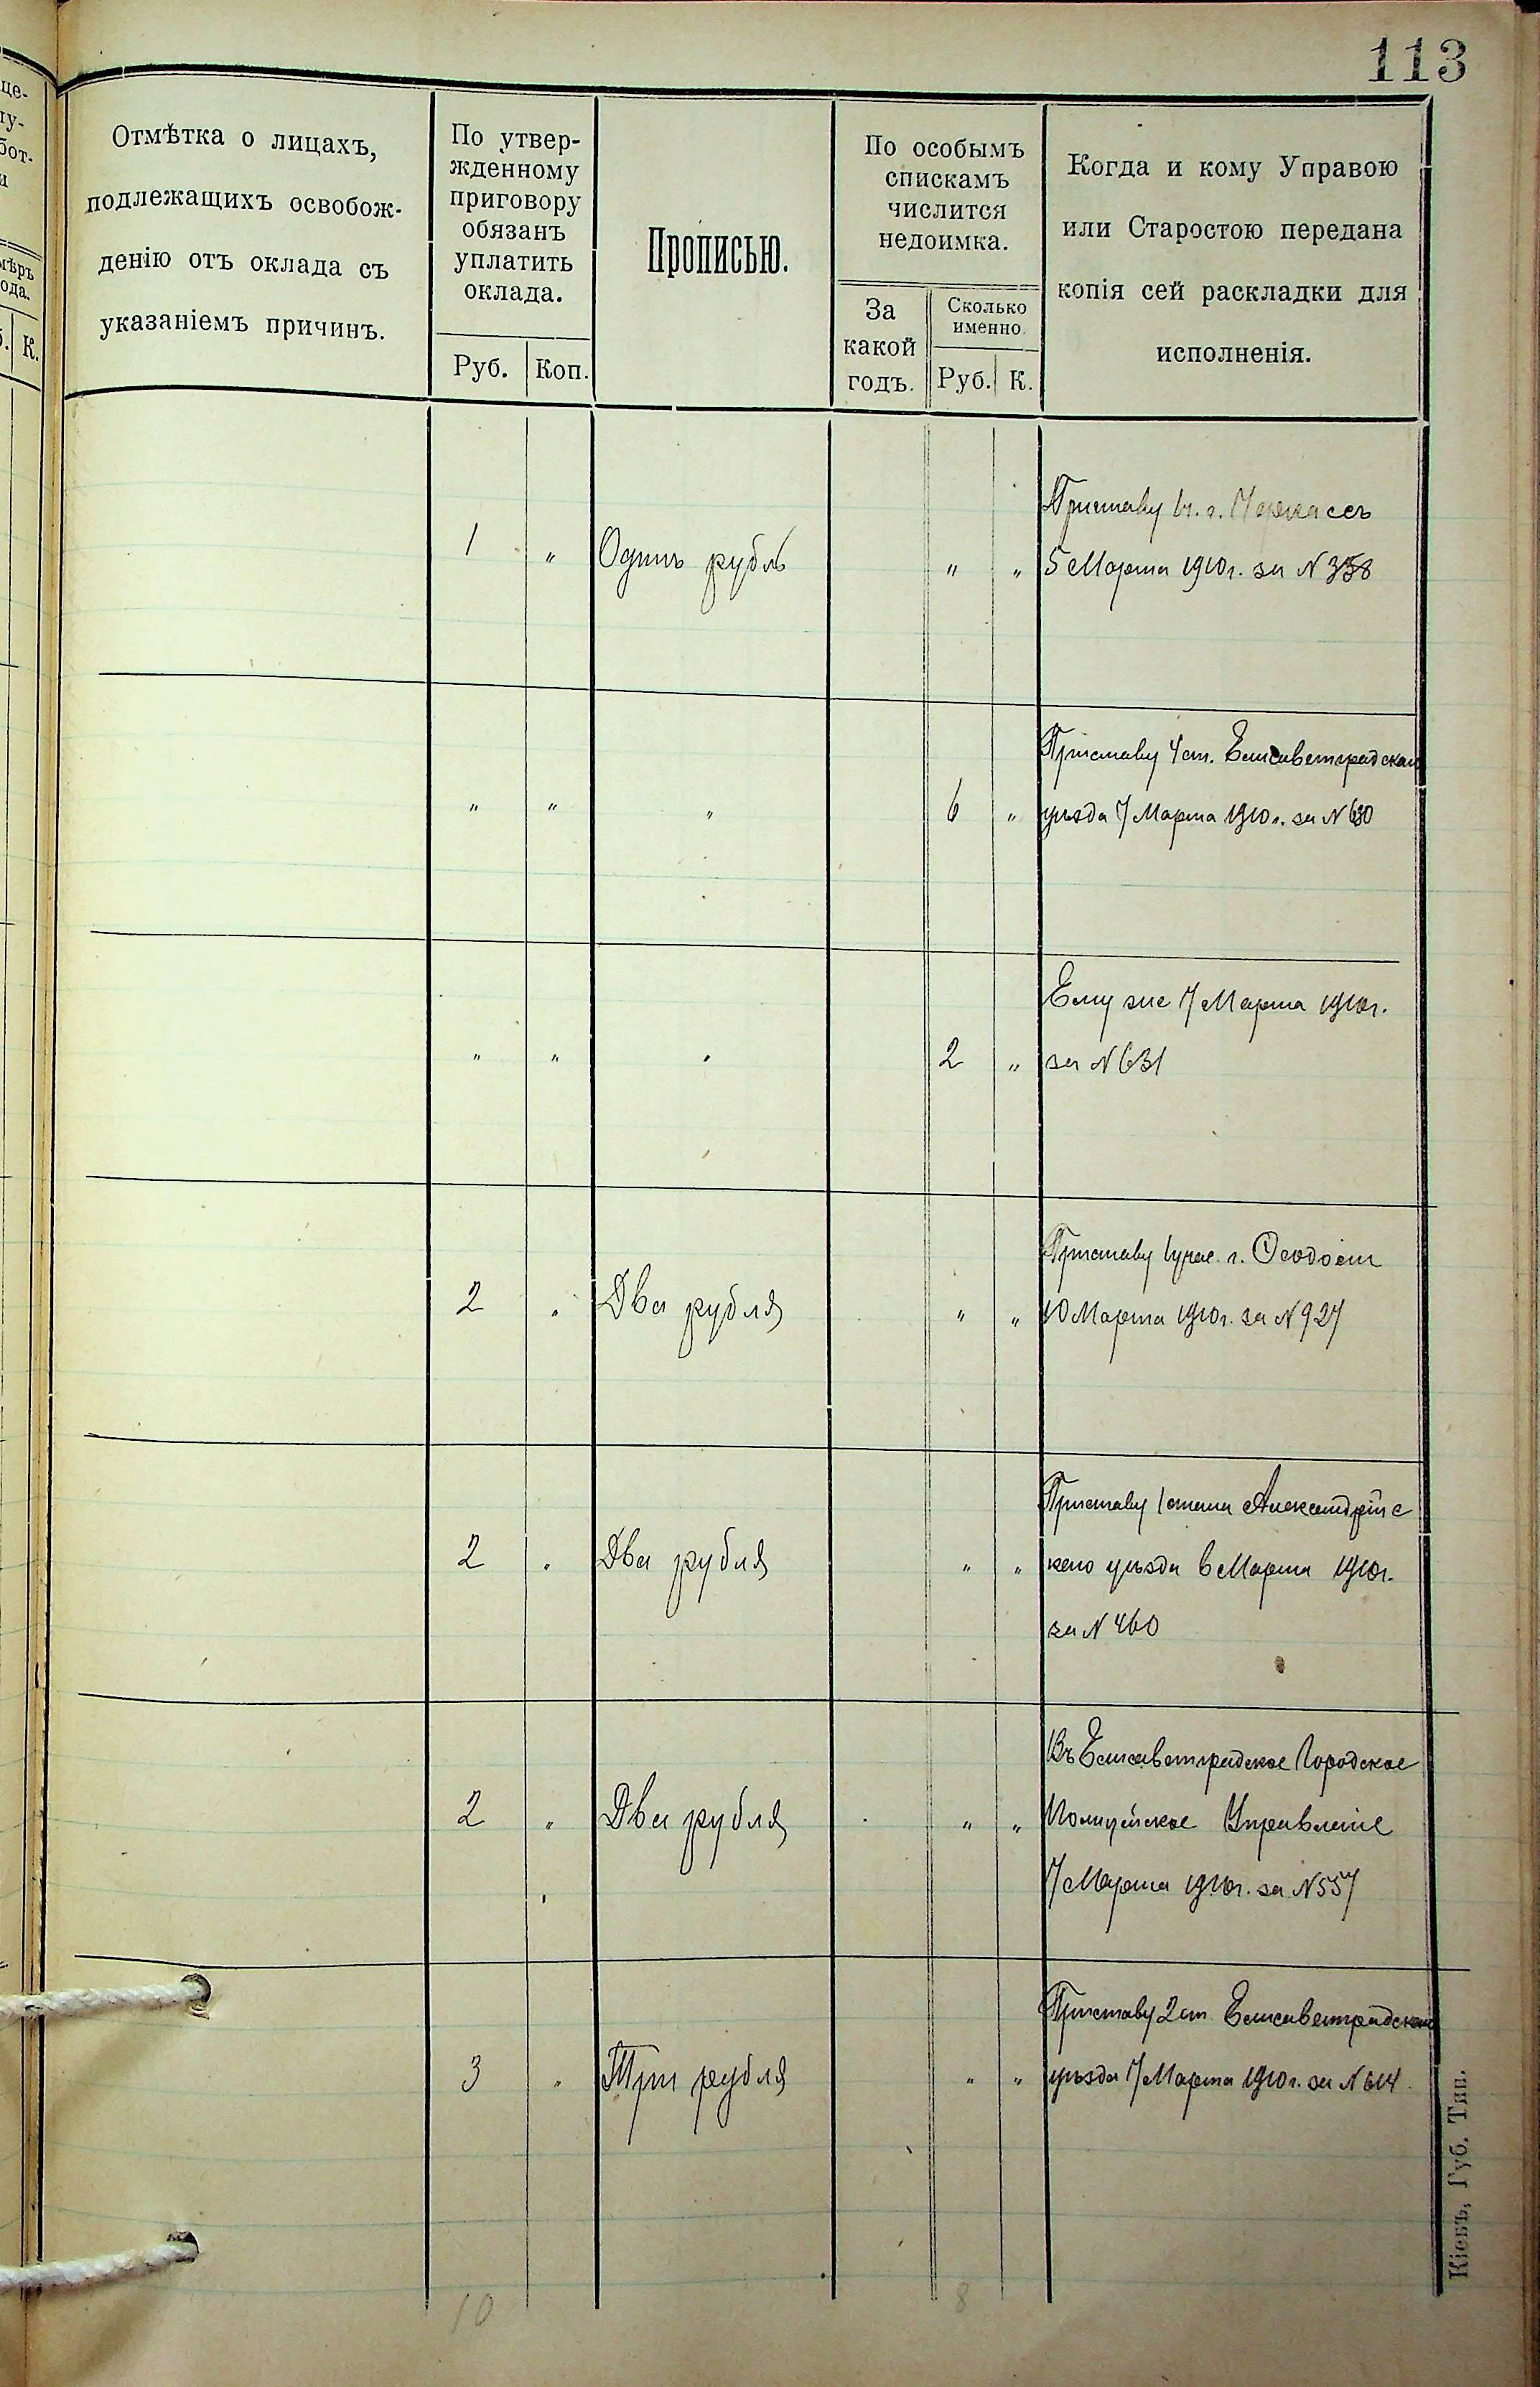 113
Отмѣтка о лицахъ,
подлежащихъ освобож-
денію отъ оклада съ
указаніемъ причинъ.
По утвер-
жденному
приговору
обязанъ
уплатить
оклада.
Руб. Коп.
Прописью.
По особымъ
спискамъ
числится
недоимка.
За
какой
годъ.
Сколько
именно
Руб. К.
Когда и кому Управою
или Старостою передана
копія сей раскладки для
исполненія.
Приставу 1 ч. г. Черкассъ
1 " Одинъ рубль " " 5 Марта 1910 г. за N 358
Приставу 4 ст. Елисаветградскаго
" " " 6 " уѣзда 7 Марта 1910 г. за N 630
Ему же 7 Марта 1910 г.
" " " 2 " за N 631
Приставу 1 учас. г. Ѳеодосіи
2 " Два рубля " " 10 Марта 1910 г. за N 927
Приставу 1 стана Александрійс
2 " Два рубля " " каго уѣзда 6 Марта 1910 г.
за N 460
Въ Елисаветградское Городское
2 " Два рубля " " Полицейское Управленіе
7 Марта 1910 г. за N 557
Приставу 2 ст Елисаветградскаго
3 " Три рубля " " уѣзда 7 Марта 1910 г. за N 614
10 8
Кіевъ, Губ. Тип.